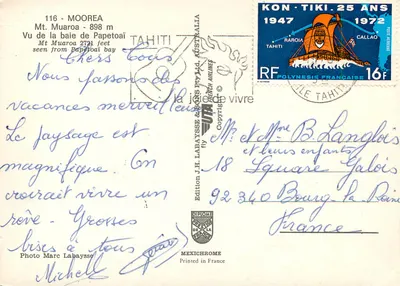 116 - MOOREA
Mt. Muaroa - 898 m
Vu de la baie de Papetoai
Mt Muaroa 2721 feet
seen from Papetoai bay
Chers Tous,
Nous passons des
vacances merveilleuses
Le paysage est
magnifique. On
croirait vivre un
rêve - Grosses
bises à tous
Michel
Photo Marc Labaysse
TAHITI
la joie de vivre
Edition J.H. LABAYSSE
Copyright ©
fly UTA
FRENCH AIRLINES
AUSTRALIA
MEXICHROME
Printed in France
KON-TIKI. 25 ANS
1947 1972
TAHITI
RAROIA
CALLAO
RF POLYNESIE FRANÇAISE 16F
ILE TAHITI
Mr et Mme B. Langlois
et leurs enfants
18 Square Galois
92 340 Bourg-la-Reine
France